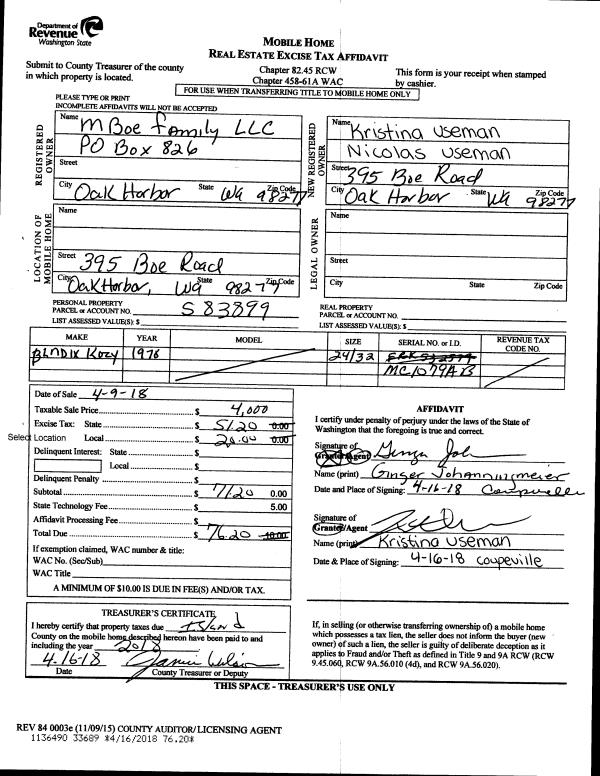 Department of
Revenue
Washington State
MOBILE HOME
REAL ESTATE EXCISE TAX AFFIDAVIT
Submit to County Treasurer of the county
in which property is located.
Chapter 82.45 RCW
Chapter 458-61A WAC
This form is your receipt when stamped
by cashier.
FOR USE WHEN TRANSFERRING TITLE TO MOBILE HOME ONLY
PLEASE TYPE OR PRINT
INCOMPLETE AFFIDAVITS WILL NOT BE ACCEPTED
REGISTERED OWNER
Name M Boe Family LLC
PO Box 826
Street
City Oak Harbor State Wa Zip Code 98277
NEW REGISTERED OWNER
Name Kristina Useman
Nicolas Useman
Street 395 Boe Road
City Oak Harbor State Wa Zip Code 98277
LOCATION OF MOBILE HOME
Name
Street 395 Boe Road
City Oak Harbor, Wa 98277 State Zip Code
LEGAL OWNER
Name
Street
City State Zip Code
PERSONAL PROPERTY
PARCEL or ACCOUNT NO. S 83899
LIST ASSESSED VALUE(S): $
REAL PROPERTY
PARCEL or ACCOUNT NO.
LIST ASSESSED VALUE(S): $
MAKE YEAR MODEL SIZE SERIAL NO. or I.D. REVENUE TAX CODE NO.
BLNDIX Kozy 1976 24/32
MC1079AB
Date of Sale 4-9-18
Taxable Sale Price $ 4,000
Excise Tax: State $ 51.20 0.00
Select Location Local $ 20.00 0.00
Delinquent Interest: State $
Local $
Delinquent Penalty $
Subtotal $ 71.20 0.00
State Technology Fee $ 5.00
Affidavit Processing Fee $
Total Due $ 76.20 10.00
If exemption claimed, WAC number & title:
WAC No. (Sec/Sub)
WAC Title
A MINIMUM OF $10.00 IS DUE IN FEE(S) AND/OR TAX.
AFFIDAVIT
I certify under penalty of perjury under the laws of the State of
Washington that the foregoing is true and correct.
Signature of
Grantor/Agent
Name (print) Ginger Johanningmeier
Date and Place of Signing: 4-16-18 Coupeville
Signature of
Grantee/Agent
Name (print) Kristina Useman
Date & Place of Signing: 4-16-18 coupeville
TREASURER'S CERTIFICATE
I hereby certify that property taxes due Island
County on the mobile home described hereon have been paid to and
including the year 2018
4-16-18 Janice Wilson
Date County Treasurer or Deputy
If, in selling (or otherwise transferring ownership of) a mobile home
which possesses a tax lien, the seller does not inform the buyer (new
owner) of such a lien, the seller is guilty of deliberate deception as it
applies to Fraud and/or Theft as defined in Title 9 and 9A RCW (RCW
9.45.060, RCW 9A.56.010 (4d), and RCW 9A.56.020).
THIS SPACE - TREASURER'S USE ONLY
REV 84 0003e (11/09/15) COUNTY AUDITOR/LICENSING AGENT
1136490 33689 *4/16/2018 76.20*